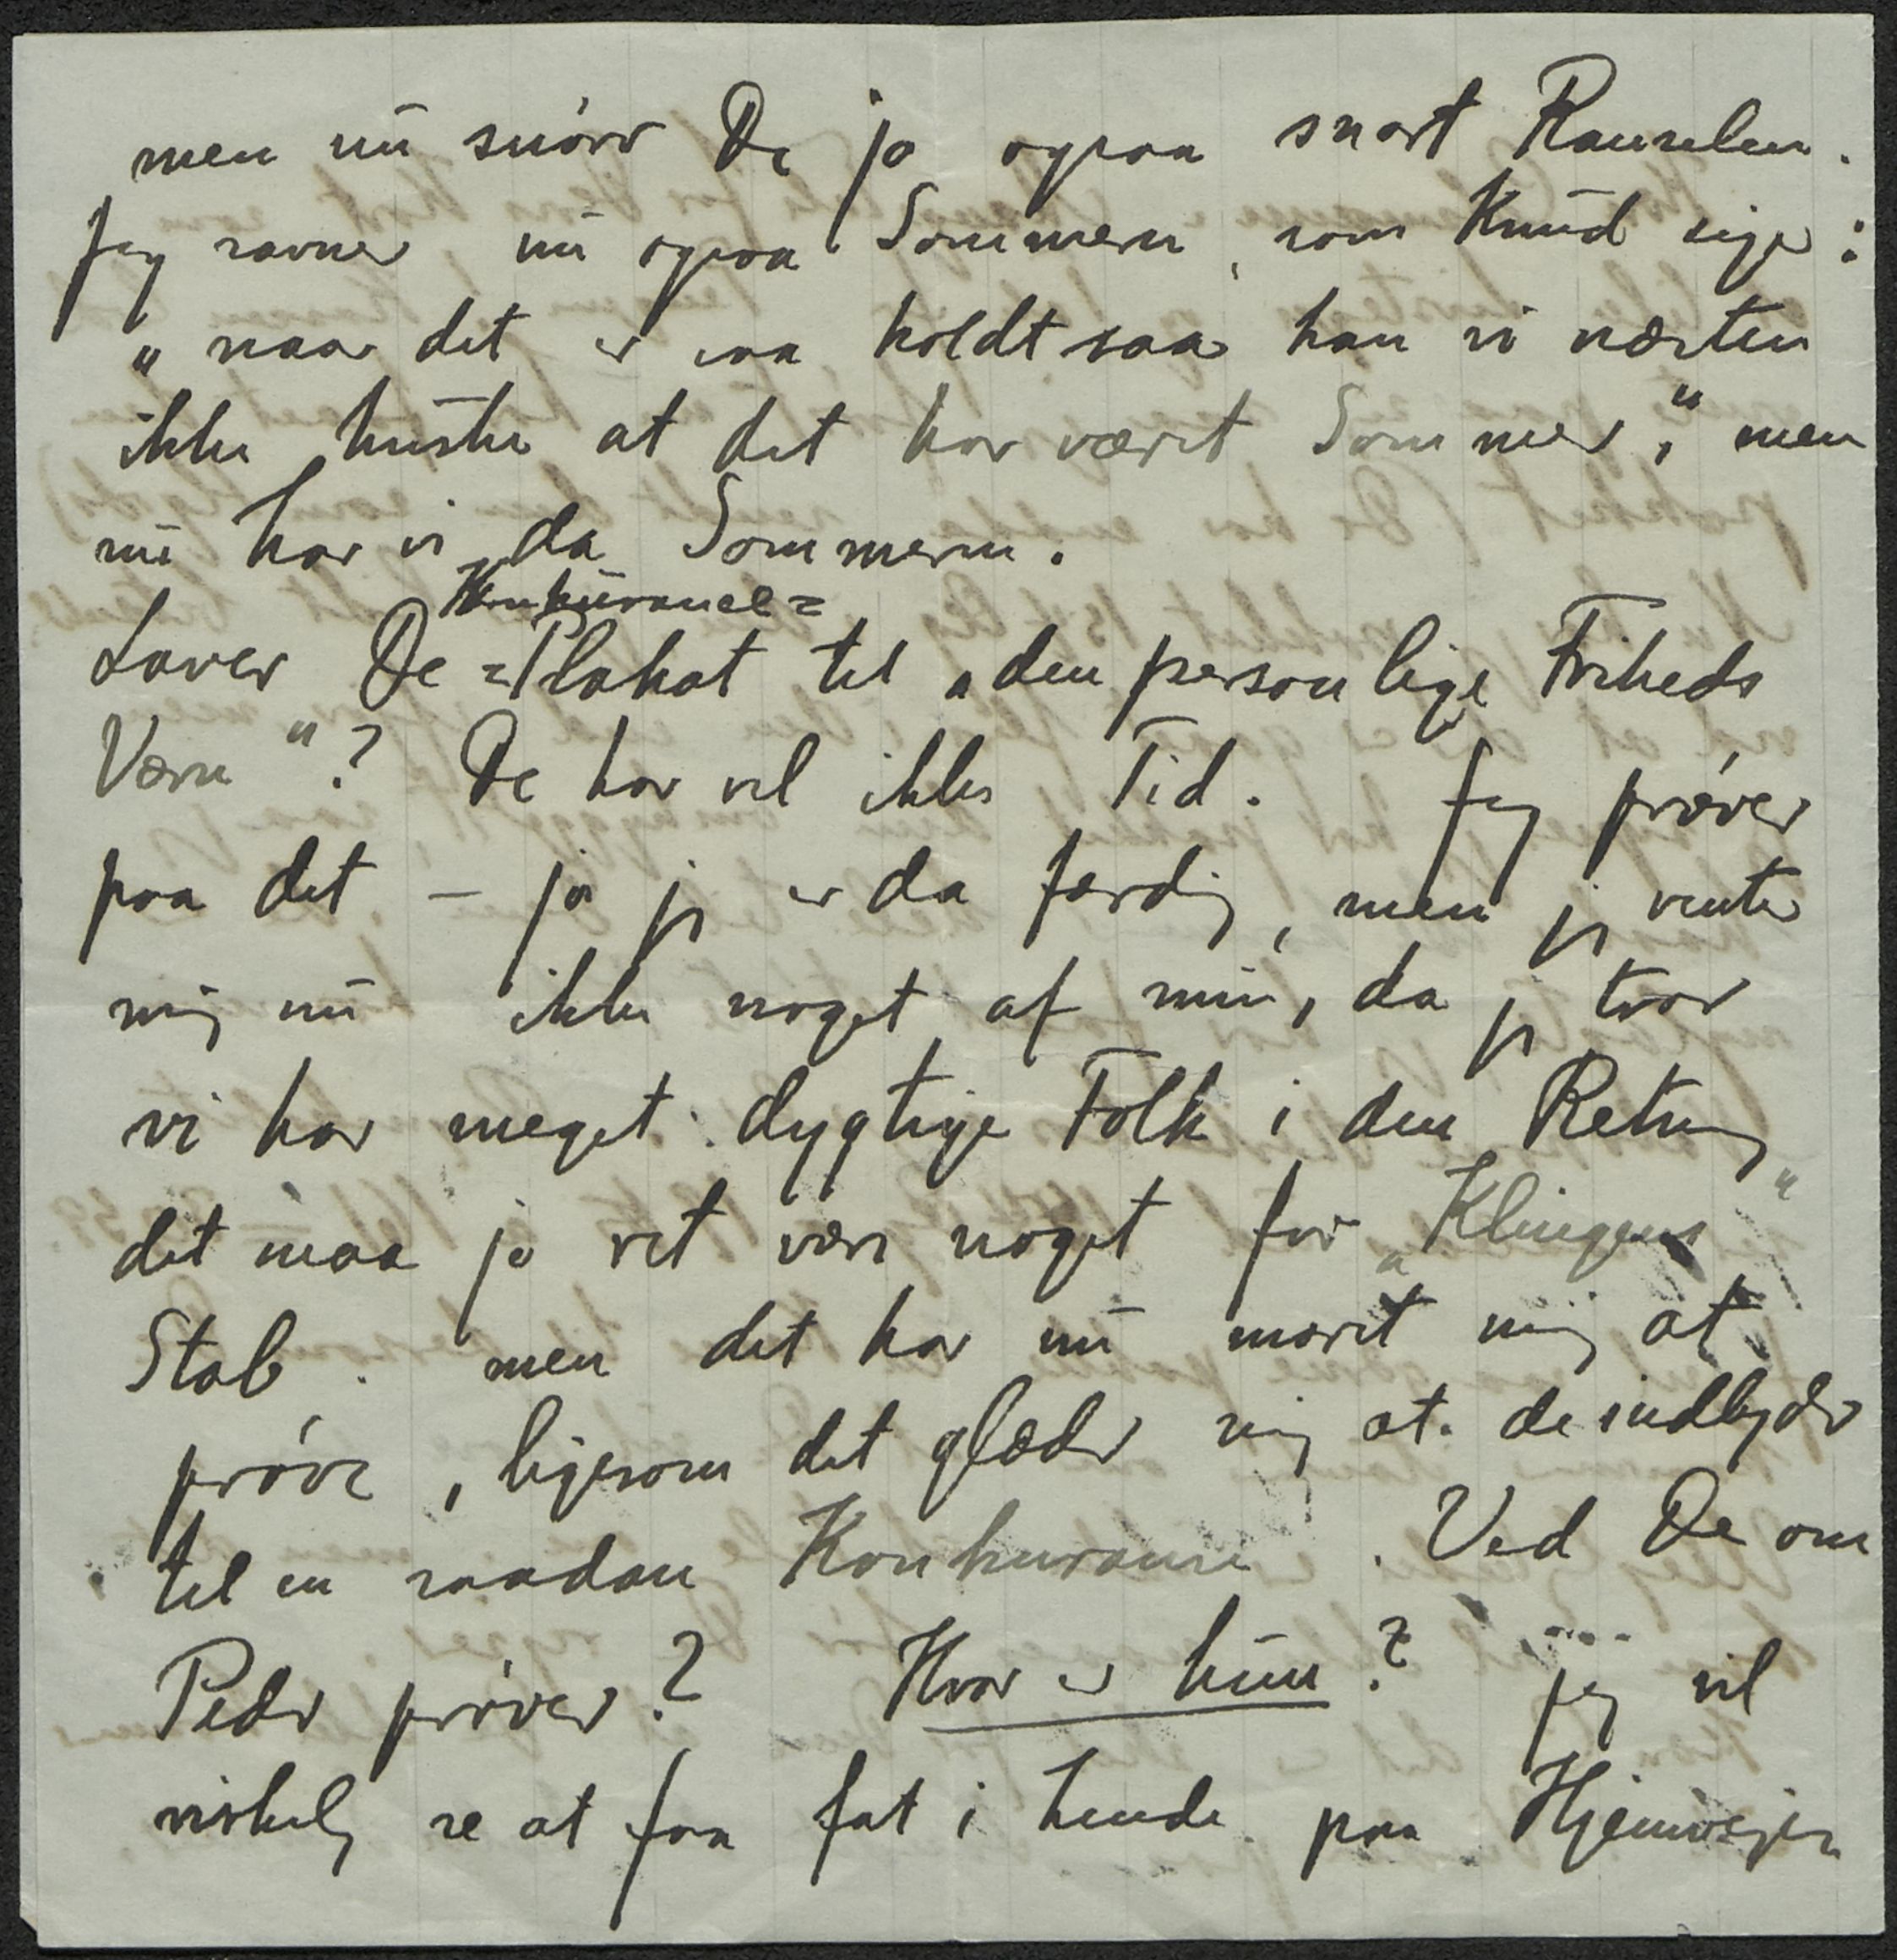 men nu snörer De jo ogsaa snart Ranselen.
Jeg savner nu ogsaa Sommeren, som Knud siger:
„naar det er saa koldt saa kan vi næsten
ikke huske at det har været Sommer", men
nu har vi da Sommeren.
Konkurrance=
Laver De =Plakat til „den personlige Friheds
Værn"? De har vel ikke Tid. Jeg pröver
paa det – ja jeg er da færdig, men jeg venter
mig nu ikke noget af min, da jeg tror
vi har meget dygtige Folk i den Retning
det maa jo ret være noget for „Klingens"
Stab. men det har nu moret mig at
pröve, ligesom det glæder mig at de indbyder
til en saadan Konkurance. Ved De om
Peder pröver? Hvor er hun? jeg vil
virkelig se at faa fat i hende paa Hjemvejen